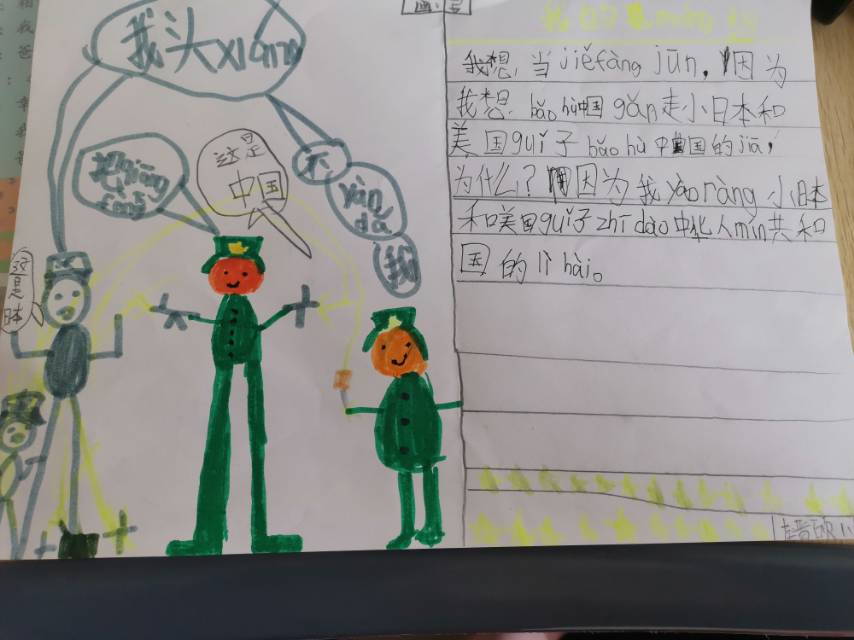 我头xiáng
这是
中国
不
yàn
dǎ
我
这是
日本
我的
mèng
我想,当jiěfàng jūn,因为
我想 bǎo hù中国gǎn走小日本和
美国guǐ子bǎo hù中国的jiā,
为什么?因为我yào ràng小日本
和美国guǐ子zhī dào中华人min共和
国的lì hài。